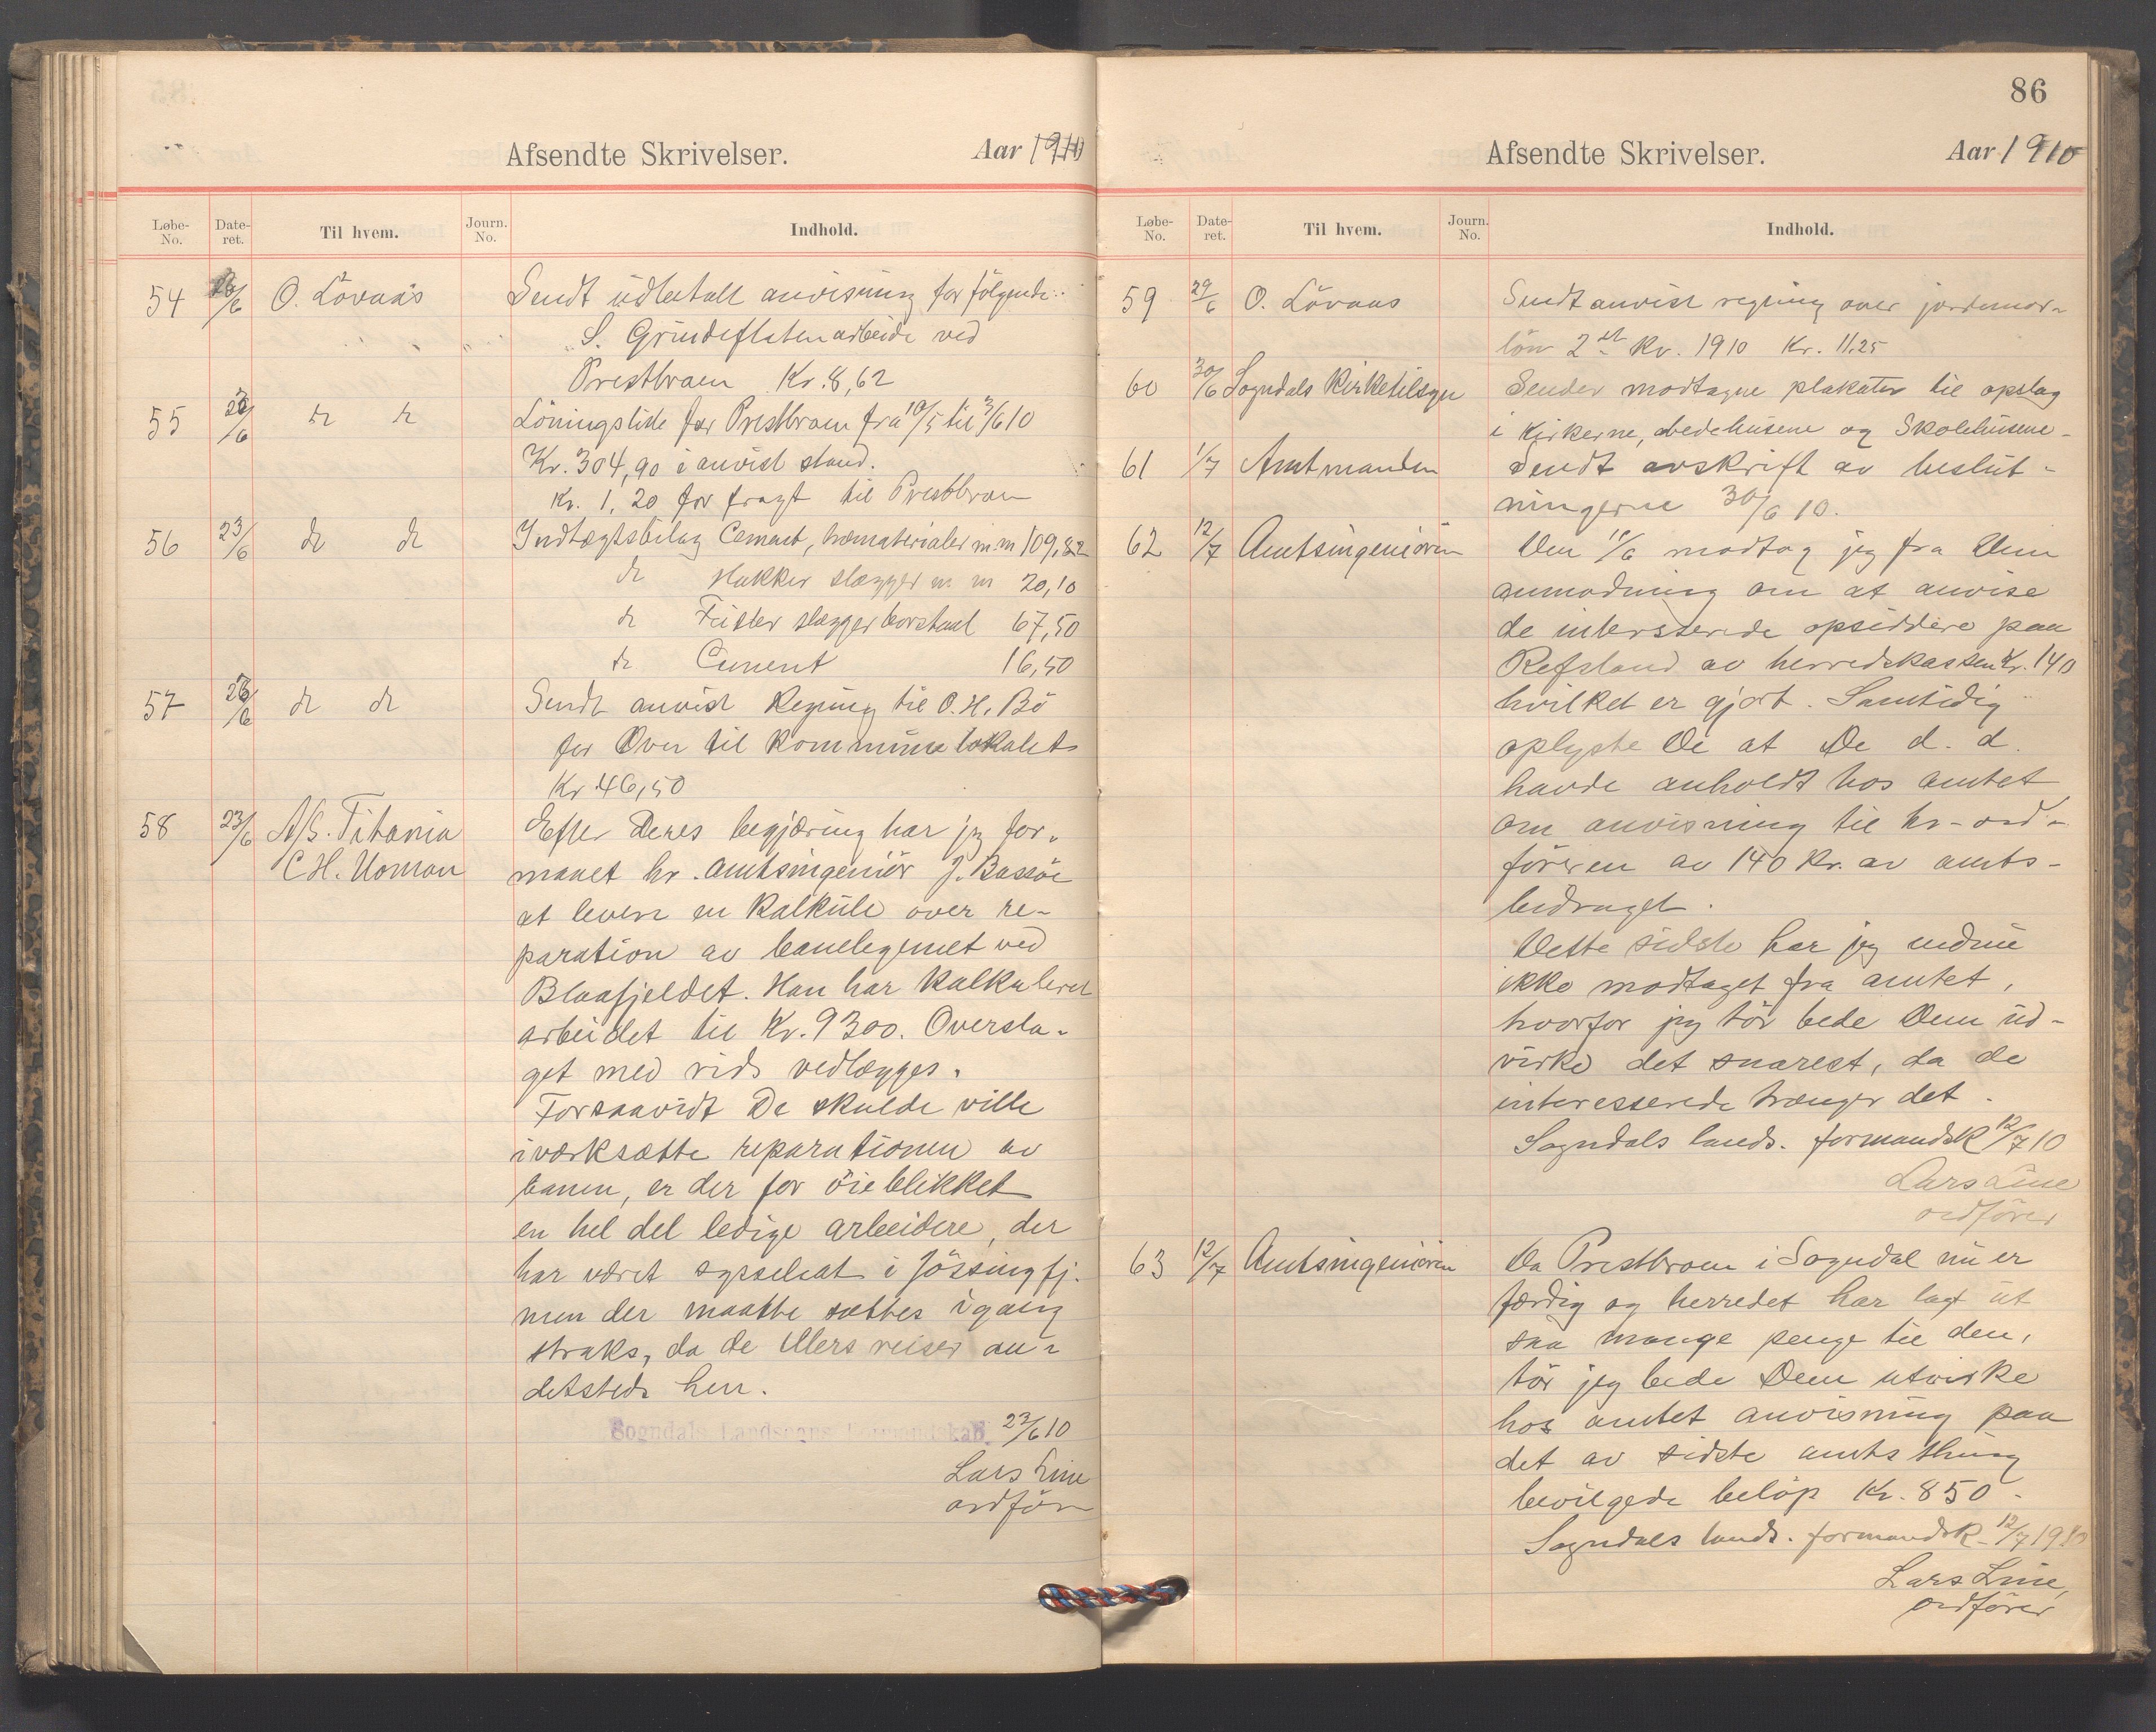 Afsendte Skrivelser. Aar 1910
Løbe-No. Date-ret. Til hvem. Journ. No. Indhold.
54 23/6 O. Lövaas Sendt udbetalt anvisning for fölgende:
S. Grindeflaten arbeide ved
Prestbroen Kr. 8,62
55 23/6 do do Löningsliste for Prestbroen fra 10/5 til 3/6 10
Kr. 304,90 i anvist stand.
Kr. 1,20 for fragt til Prestbroen
56 23/6 do do Indtægtsbilag Cement, træmaterialer m.m 109,82
do Hakker slægger m. m 20,10
do Feisler slægger borstaal 67,50
do Cement 16,50
57 23/6 do do Sendt anvist Regning til O. H. Bö
for Oven til kommunelokalet
Kr 46,50
58 23/6 A/S. Titania Efter Deres begjæring har jeg for-
C. H. Homan maaet hr. amtsingeniör J. Bassöe
at levere en kalkule over re-
paration av banelegemet ved
Blaafjeldet. Han har kalkuleret
arbeidet til Kr. 9300. Oversla-
get med rids vedlægges.
Forsaavidt De skulde ville
iværksætte reparationen av
banen, er der for öieblikket
en hel del ledige arbeidere, der
har været sysselsat i Jössingfj.
men der maatte sættes igang
straks, da de ellers reiser an-
detsteds hen.
Sogndals Landsogns Formandskab, 23/6 10
Lars Line
ordförer
86
Afsendte Skrivelser. Aar 1910
Løbe-No. Date-ret. Til hvem. Journ. No. Indhold.
59 29/6 O. Lövaas Sendt anvist regning over jordemor-
lön 2det Kv. 1910 Kr. 11.25
60 30/6 Sogndals Kirketilsyn Sender modtagne plakater til opslag
i Kirkerne, bedehusene og Skolehusene-
61 1/7 Amtmanden Sendt avskrift av beslut-
ningerne 30/6 10.
62 12/7 Amtsingeniören Den 11/6 modtog jeg fra Dem
anmodning om at anvise
de interesserede opsiddere paa
Refsland av herredskassen Kr. 140
hvilket er gjort. Samtidig
oplyste De at De d. d.
havde anholdt hos amtet
om anvisning til hr- ord-
föreren av 140 Kr. av amts-
bidraget.
Dette sidste har jeg endnu
ikke modtaget fra amtet,
hvorfor jeg tör bede Dem ud-
virke det snarest, da de
interesserede trænger det.
Sogndals lands. formandsk 12/7 10
Lars Line
ordförer
63 12/7 Amtsingeniören Da Prestbroen i Sogndal nu er
færdig og herredet har lagt ut
saa mange penge til den,
tör jeg bede Dem utvirke
hos amtet anvisning paa
det av sidste amtsthing
bevilgede belöp Kr. 850-
Sogndals lands. formandsk- 12/7 1910
Lars Line,
ordförer